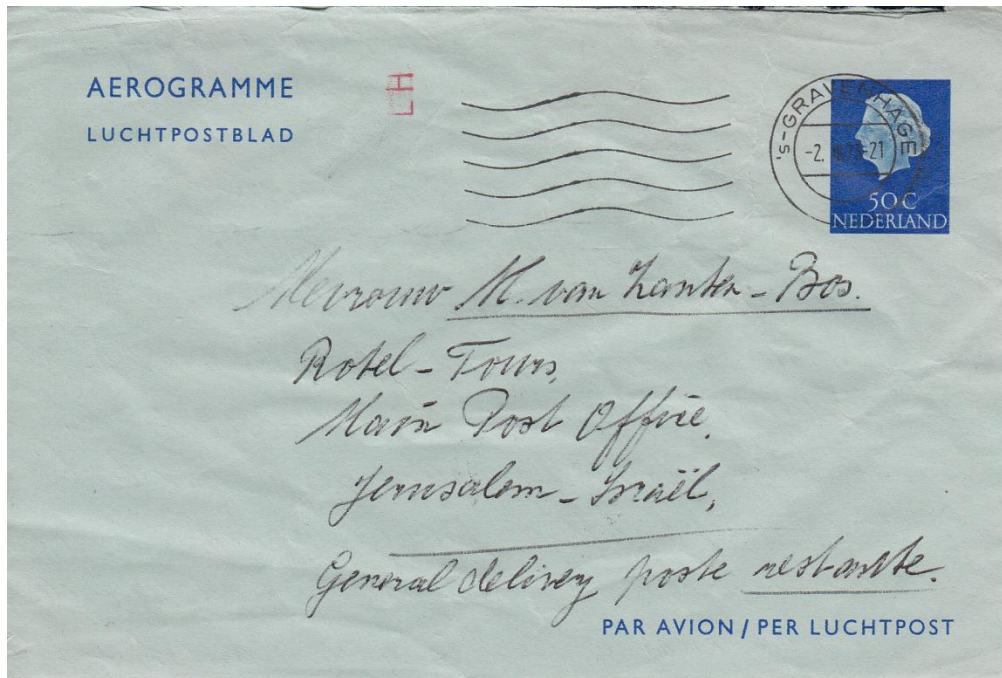 AEROGRAMME
LUCHTPOSTBLAD
LH
's-GRAVENHAGE
-2. -21
50C
NEDERLAND
Mevrouw M. van Zanten-Bos.
Rotel-Tours,
Main Post Office,
Jerusalem-Israël,
General delivery poste restante.
PAR AVION / PER LUCHTPOST